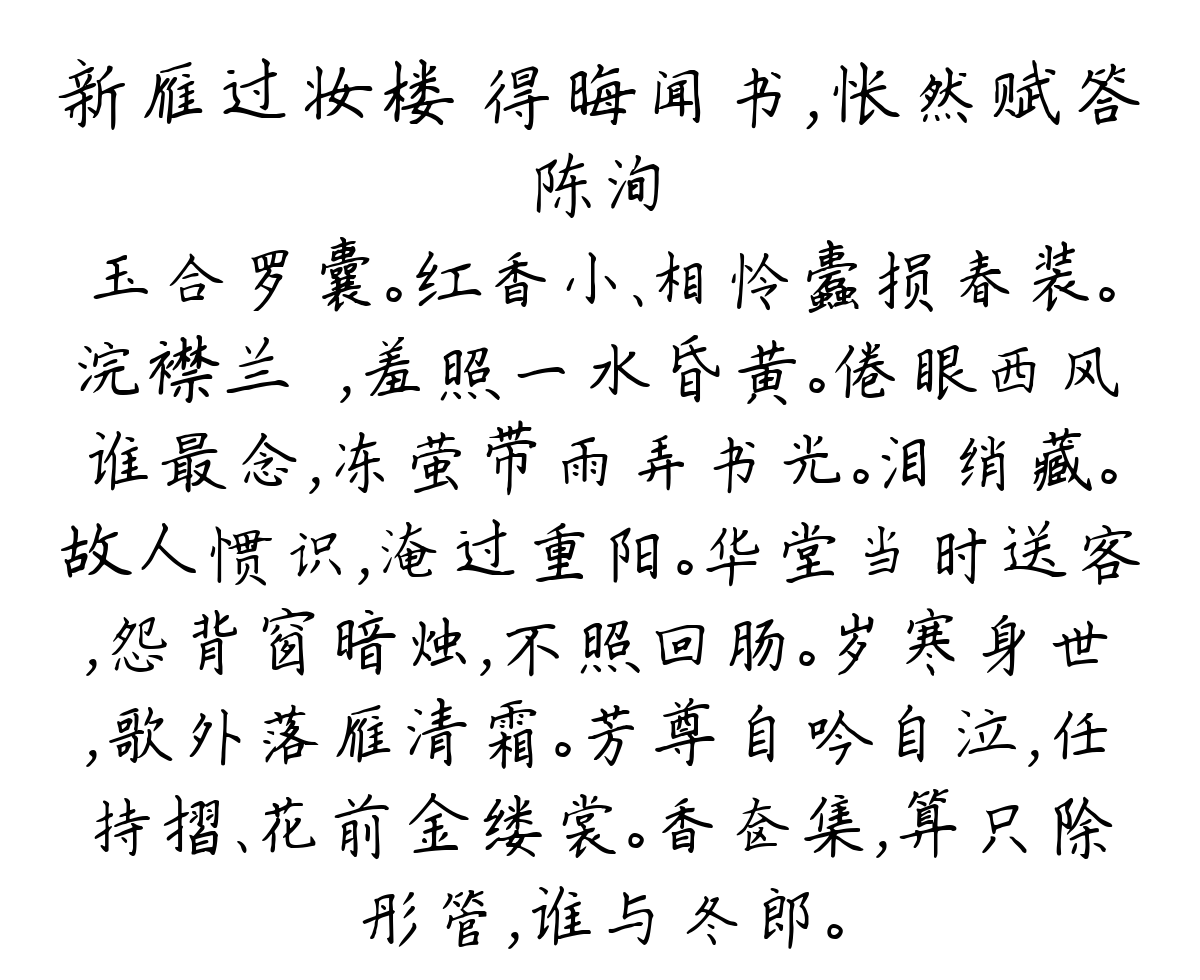 新雁过妆楼 得晦闻书,怅然赋答
陈洵
玉合罗囊。红香小、相怜蠹损春装。
浣襟兰 ,羞照一水昏黄。倦眼西风
谁最念,冻萤带雨弄书光。泪绡藏。
故人惯识,淹过重阳。华堂当时送客
,怨背窗暗烛,不照回肠。岁寒身世
,歌外落雁清霜。芳尊自吟自泣,任
持摺、花前金缕裳。香奁集,算只除
彤管,谁与冬郎。